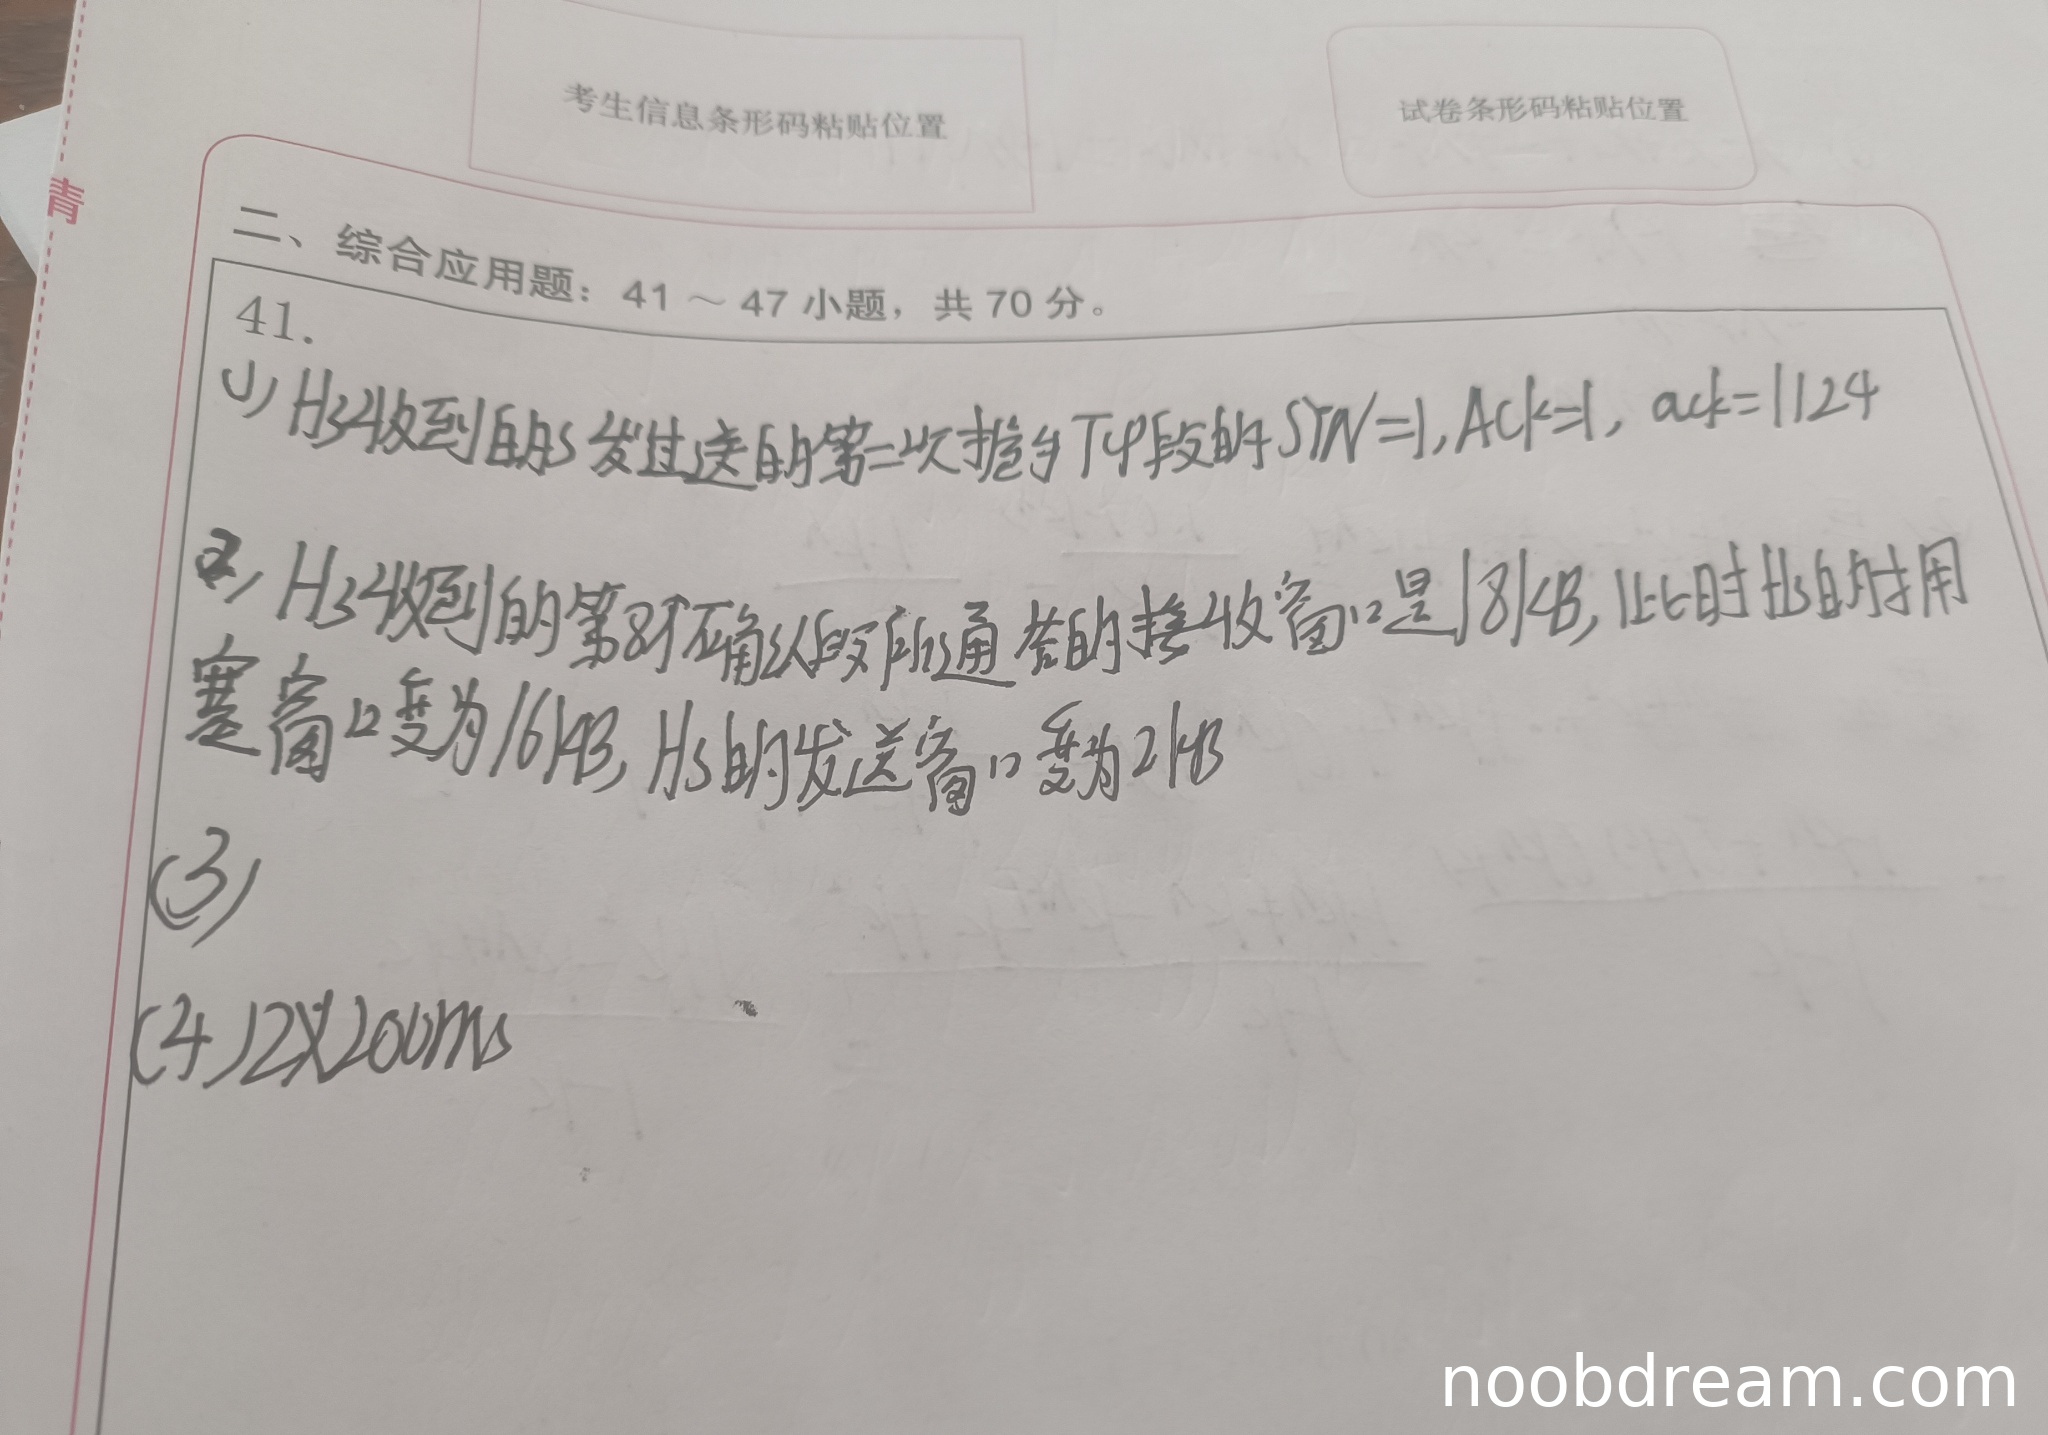 考生信息条形码粘贴位置
试卷条形码粘贴位置
青
二、综合应用题：41 ～ 47 小题，共 70 分。
41.
(1) H3收到的S发过送的第二次握手TCP段的SYN=1, ACK=1, ack=1124
2) H3收到的第8个确认段所通告的接收窗口是18KB, 此时H3的拥
塞窗口变为16KB, H3的发送窗口变为2KB
(3)
(4) 2×200ms
noobdream.com